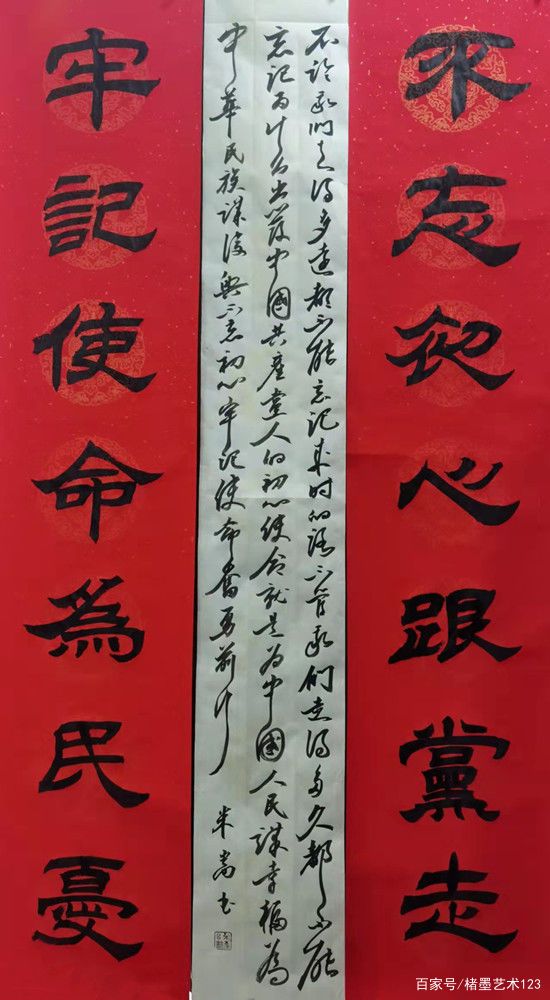 不忘初心跟黨走
不论我们走得多远都不能忘记来时的路不管我们走得多久都不能
忘记为什么出发中國共產党人的初心使命就是为中國人民谋幸福為
中華民族谋復興不忘初心牢记使命奋勇前行
米嵩书
牢記使命為民憂
百家号/楮墨艺术123